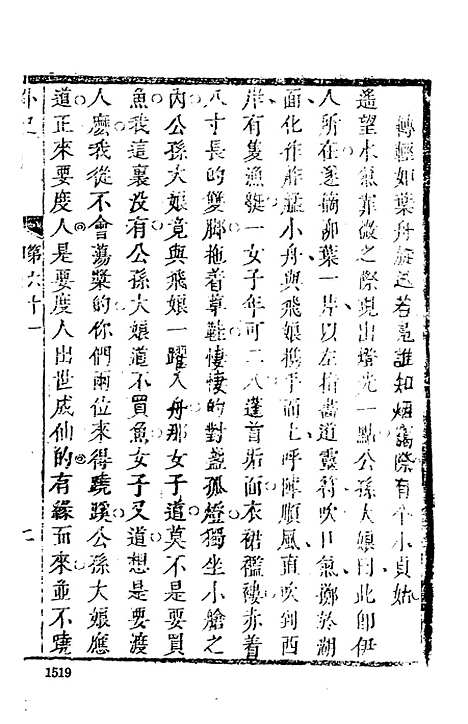 轉輕如葉舟旋迅若鳧誰知烟靄際有个小貞姑
遥望水氣霏微之際現出燈光一點公孫大娘曰此卽伊
人所在遂摘柳葉一片以左指畫道靈符吹口氣擲於湖
面化作舴艋小舟與飛娘携手而上呼陣順風直吹到西
岸有隻漁艇一女子年可二八蓬首垢面衣裙襤褸赤着
八寸長的雙脚拖着草鞋悽悽的對盞孤燈獨坐小艙之
內公孫大娘竟與飛娘一躍入舟那女子道莫不是要買
魚我這裏没有公孫大娘道不買魚女子又道想是要渡
人麽我從不會蕩槳的你們兩位來得蹺蹊公孫大娘應
道正來要度人是要度人出世成仙的有緣而來並不蹺
外史
第六十一
七
1519